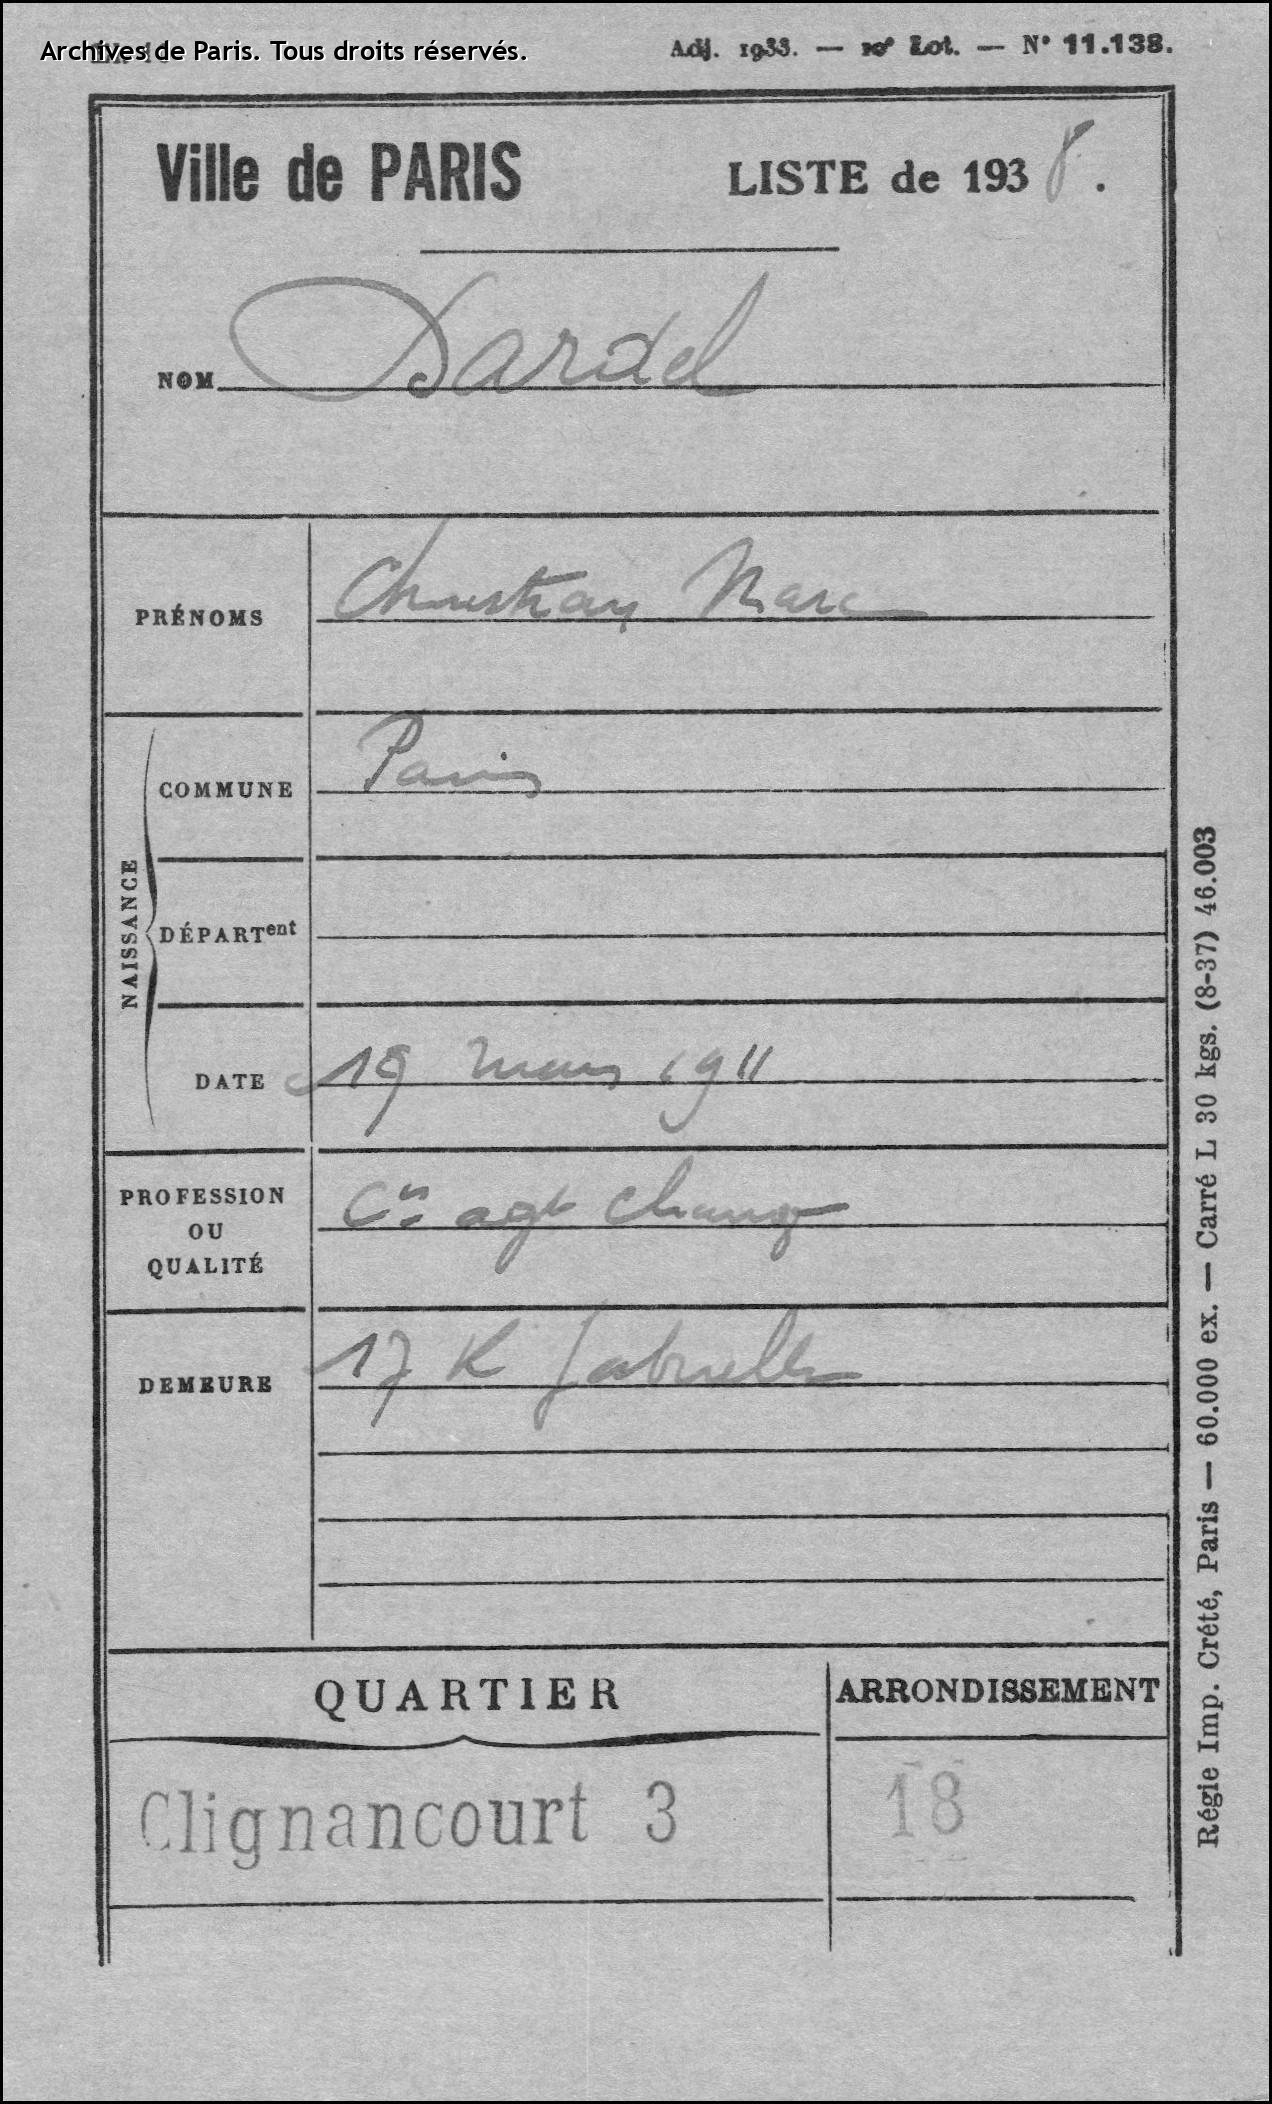 Archives de Paris. Tous droits réservés.
Adj. 1933. — 10e Lot. — N° 11.138.
Ville de PARIS
LISTE de 1938.
NOM Dardel
PRÉNOMS Christian Marc
NAISSANCE
COMMUNE Paris
DÉPARTent
DATE 19 mars 1911
PROFESSION
OU
QUALITÉ
Cis agt change
DEMEURE 17 R Gabrielle
QUARTIER
ARRONDISSEMENT
Clignancourt 3
18
Régie Imp. Crété, Paris — 60.000 ex. — Carré L 30 kgs. (8-37) 46.003